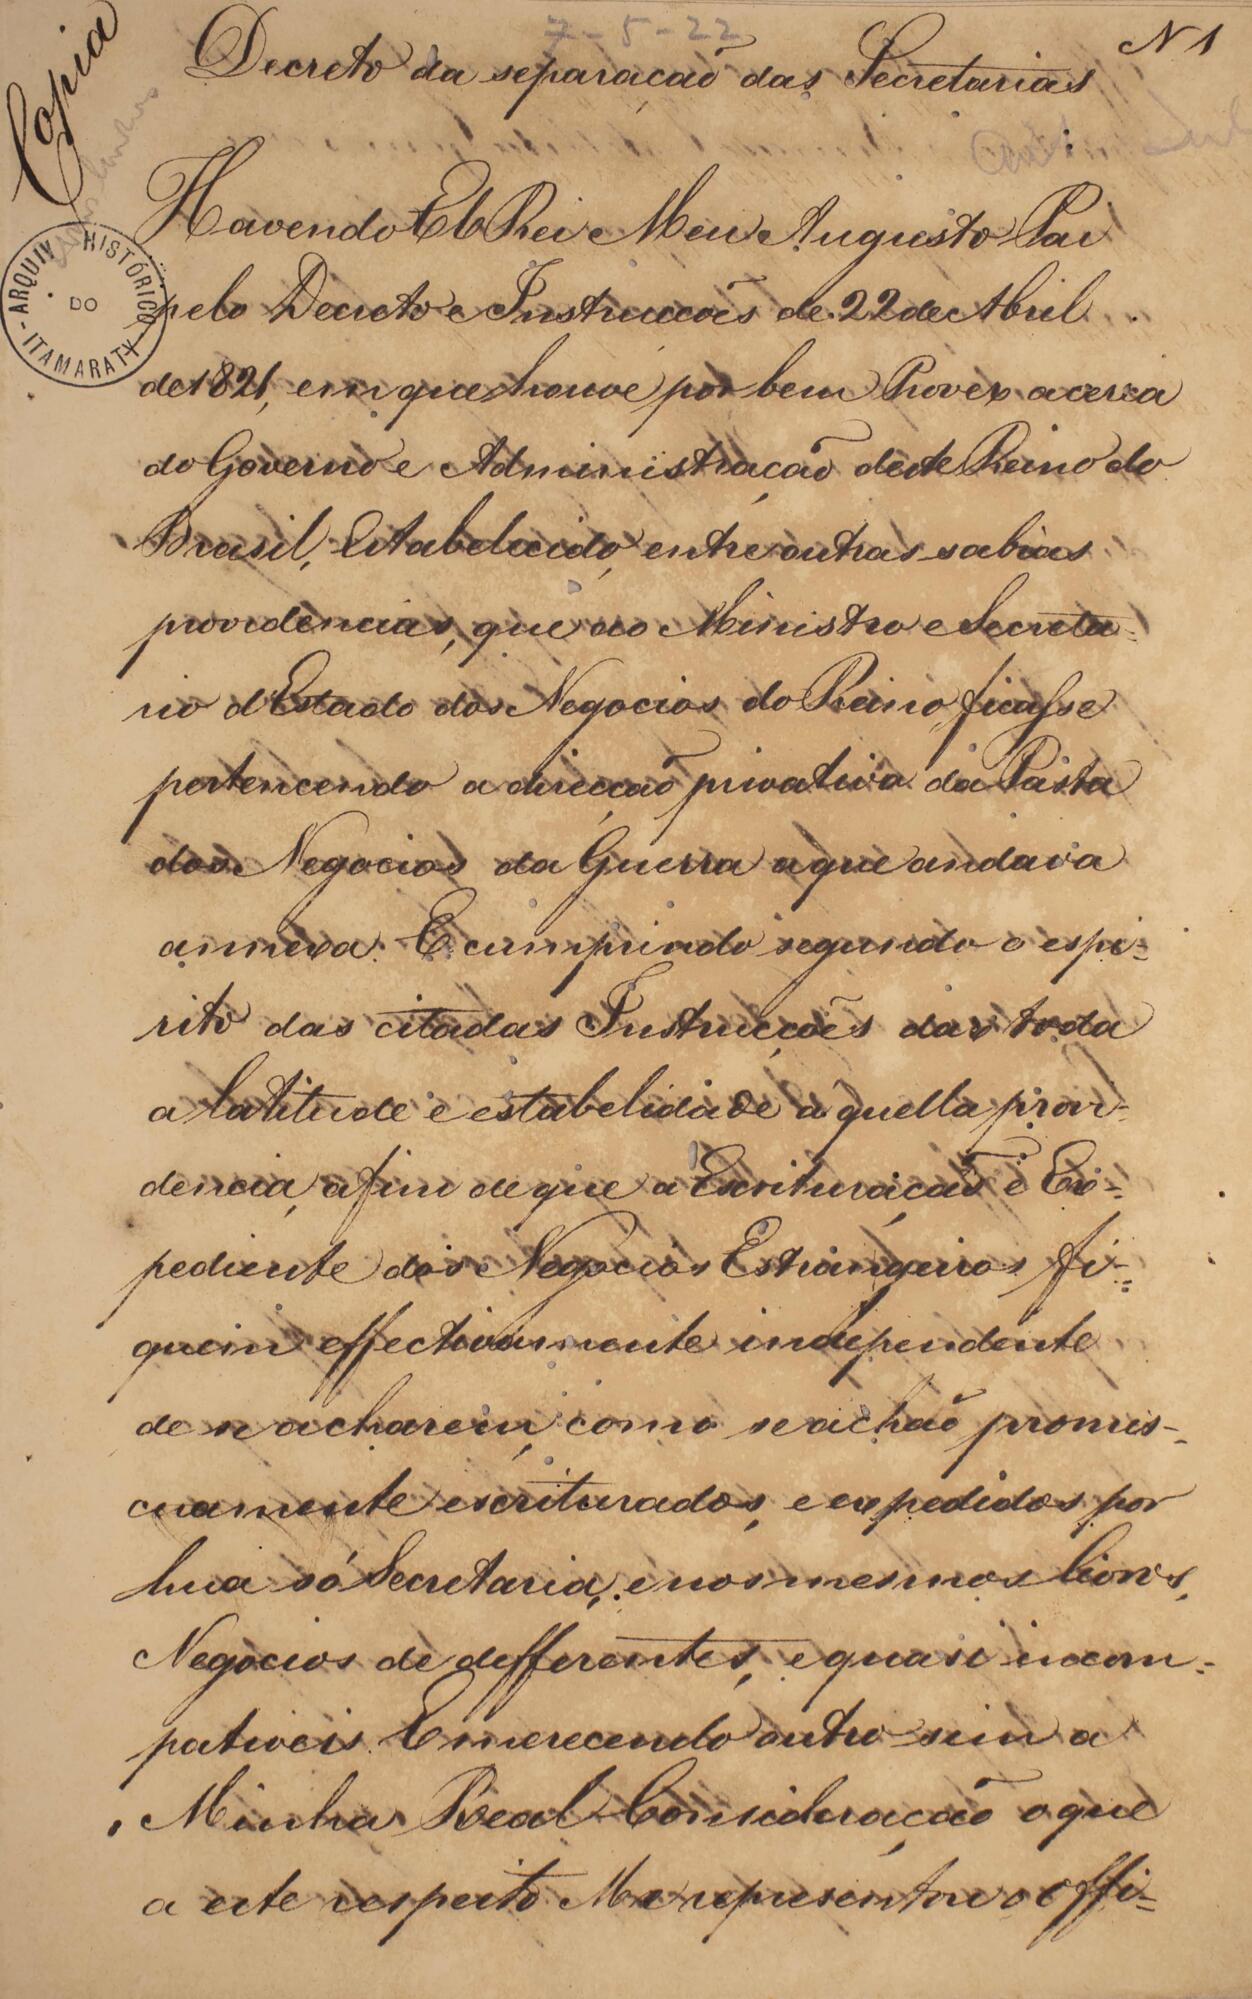 7-5-22
Copia
N 1
Decreto da separação das Secretarias
ARQUIVO HISTÓRICO
DO
ITAMARATY
Havendo El Rei Meu Augusto Pai
pelo Decreto e Instrucções de 22 de Abril
de 1821, em que houve por bem Prover acerca
do Governo e Administração deste Reino do
Brasil, Estabelecido, entre outras sabias
providencias, que ao Ministro e Secreta-
rio d'Estado dos Negocios do Reino ficasse
pertencendo a direcção privativa da Pasta
dos Negocios da Guerra a que andava
annexa. E cumprindo segundo o espi-
rito das citadas Instrucções dar toda
a latitude e estabelidade aquella provi-
dencia, afim de que a Escrituração e Ex-
pediente dos Negocios Estrangeiros fi-
quem effectivamente independente
de se acharem, como se achão promis-
cuamente escriturados, e expedidos por
hua só Secretaria, e nos mesmos livros,
Negocios de defferentes, e quasi incom-
pativeis. E merecendo outro sim a
Minha Real Consideração o que
a este respeito Me representou o Offi-